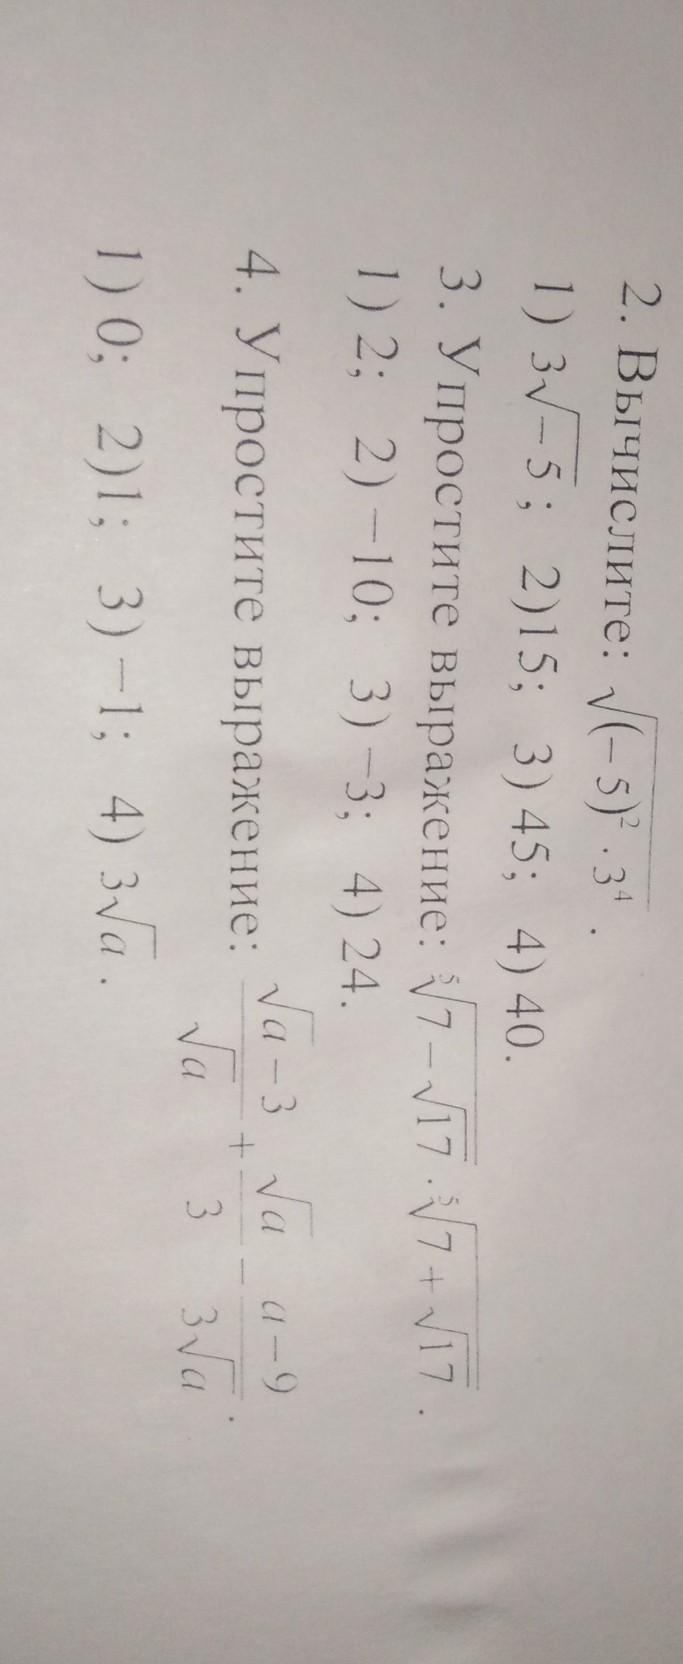 2. Вычислите: √((−5)² · 3⁴).
1) 3√−5; 2)15; 3) 45; 4) 40.
3. Упростите выражение: ⁵√(7−√17) · ⁵√(7+√17).
1) 2; 2) −10; 3) −3; 4) 24.
4. Упростите выражение: (√a−3)/√a + √a/3 − (a−9)/(3√a).
1) 0; 2)1; 3) −1; 4) 3√a.